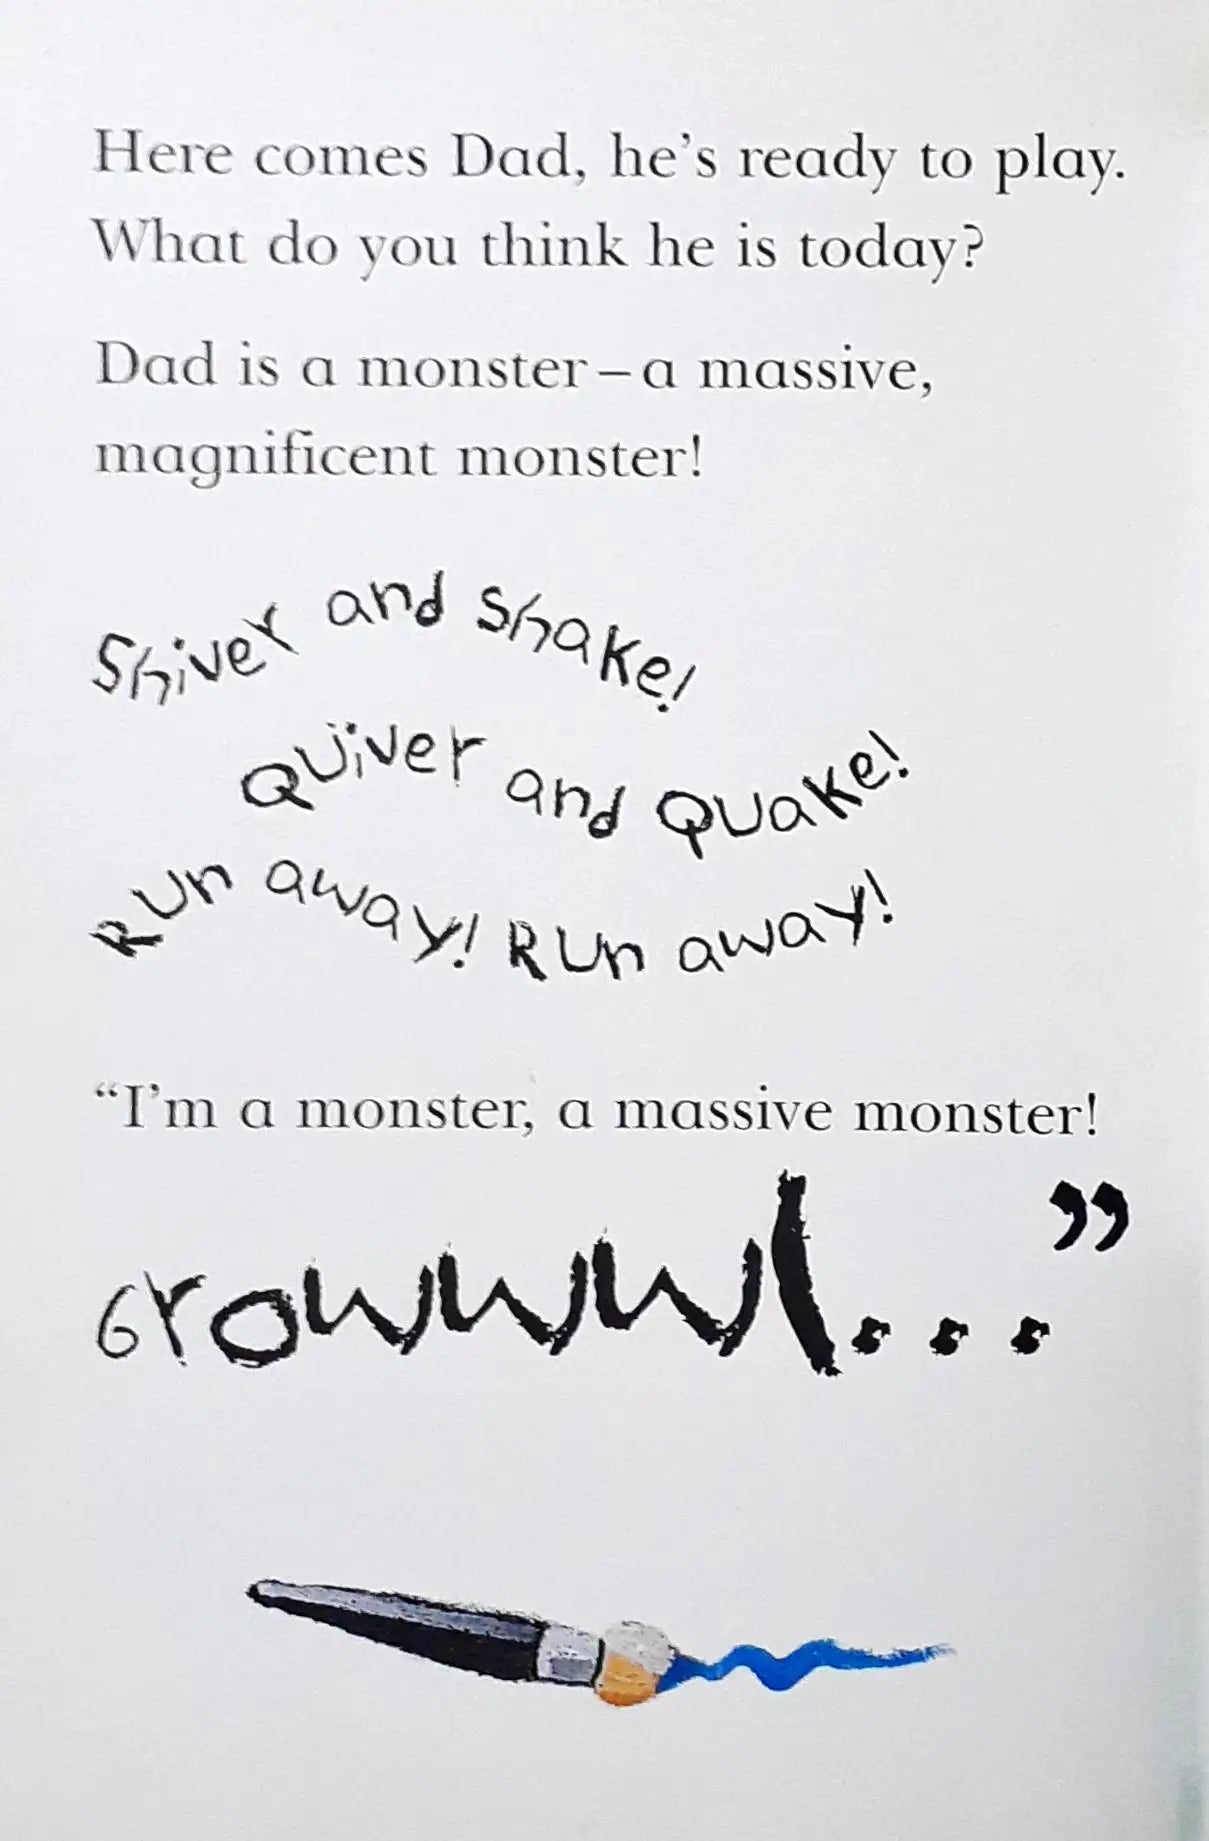 Here comes Dad, he's ready to play.
What do you think he is today?
Dad is a monster – a massive,
magnificent monster!
Shiver and shake!
Quiver and Quake!
Run away! Run away!
“I'm a monster, a massive monster!
Growwwl...”